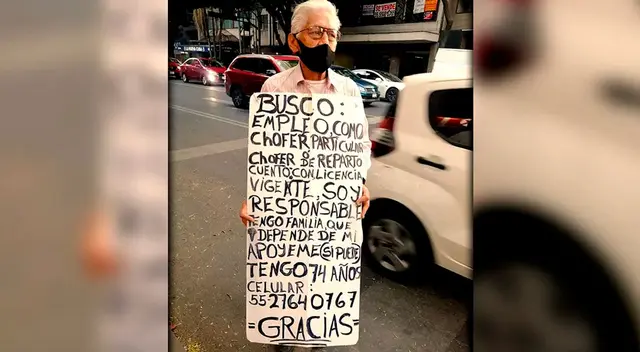 BUSCO:
EMPLEO COMO
CHOFER PARTICULAR
Ó
CHOFER DE REPARTO
CUENTO: CON LICENCIA
VIGENTE. SOY
RESPONSABLE
TENGO FAMILIA, QUE
DEPENDE DE MI
APOYEME (SI PUEDE)
TENGO 74 AÑOS
CELULAR:
55 2764 0767
=GRACIAS=